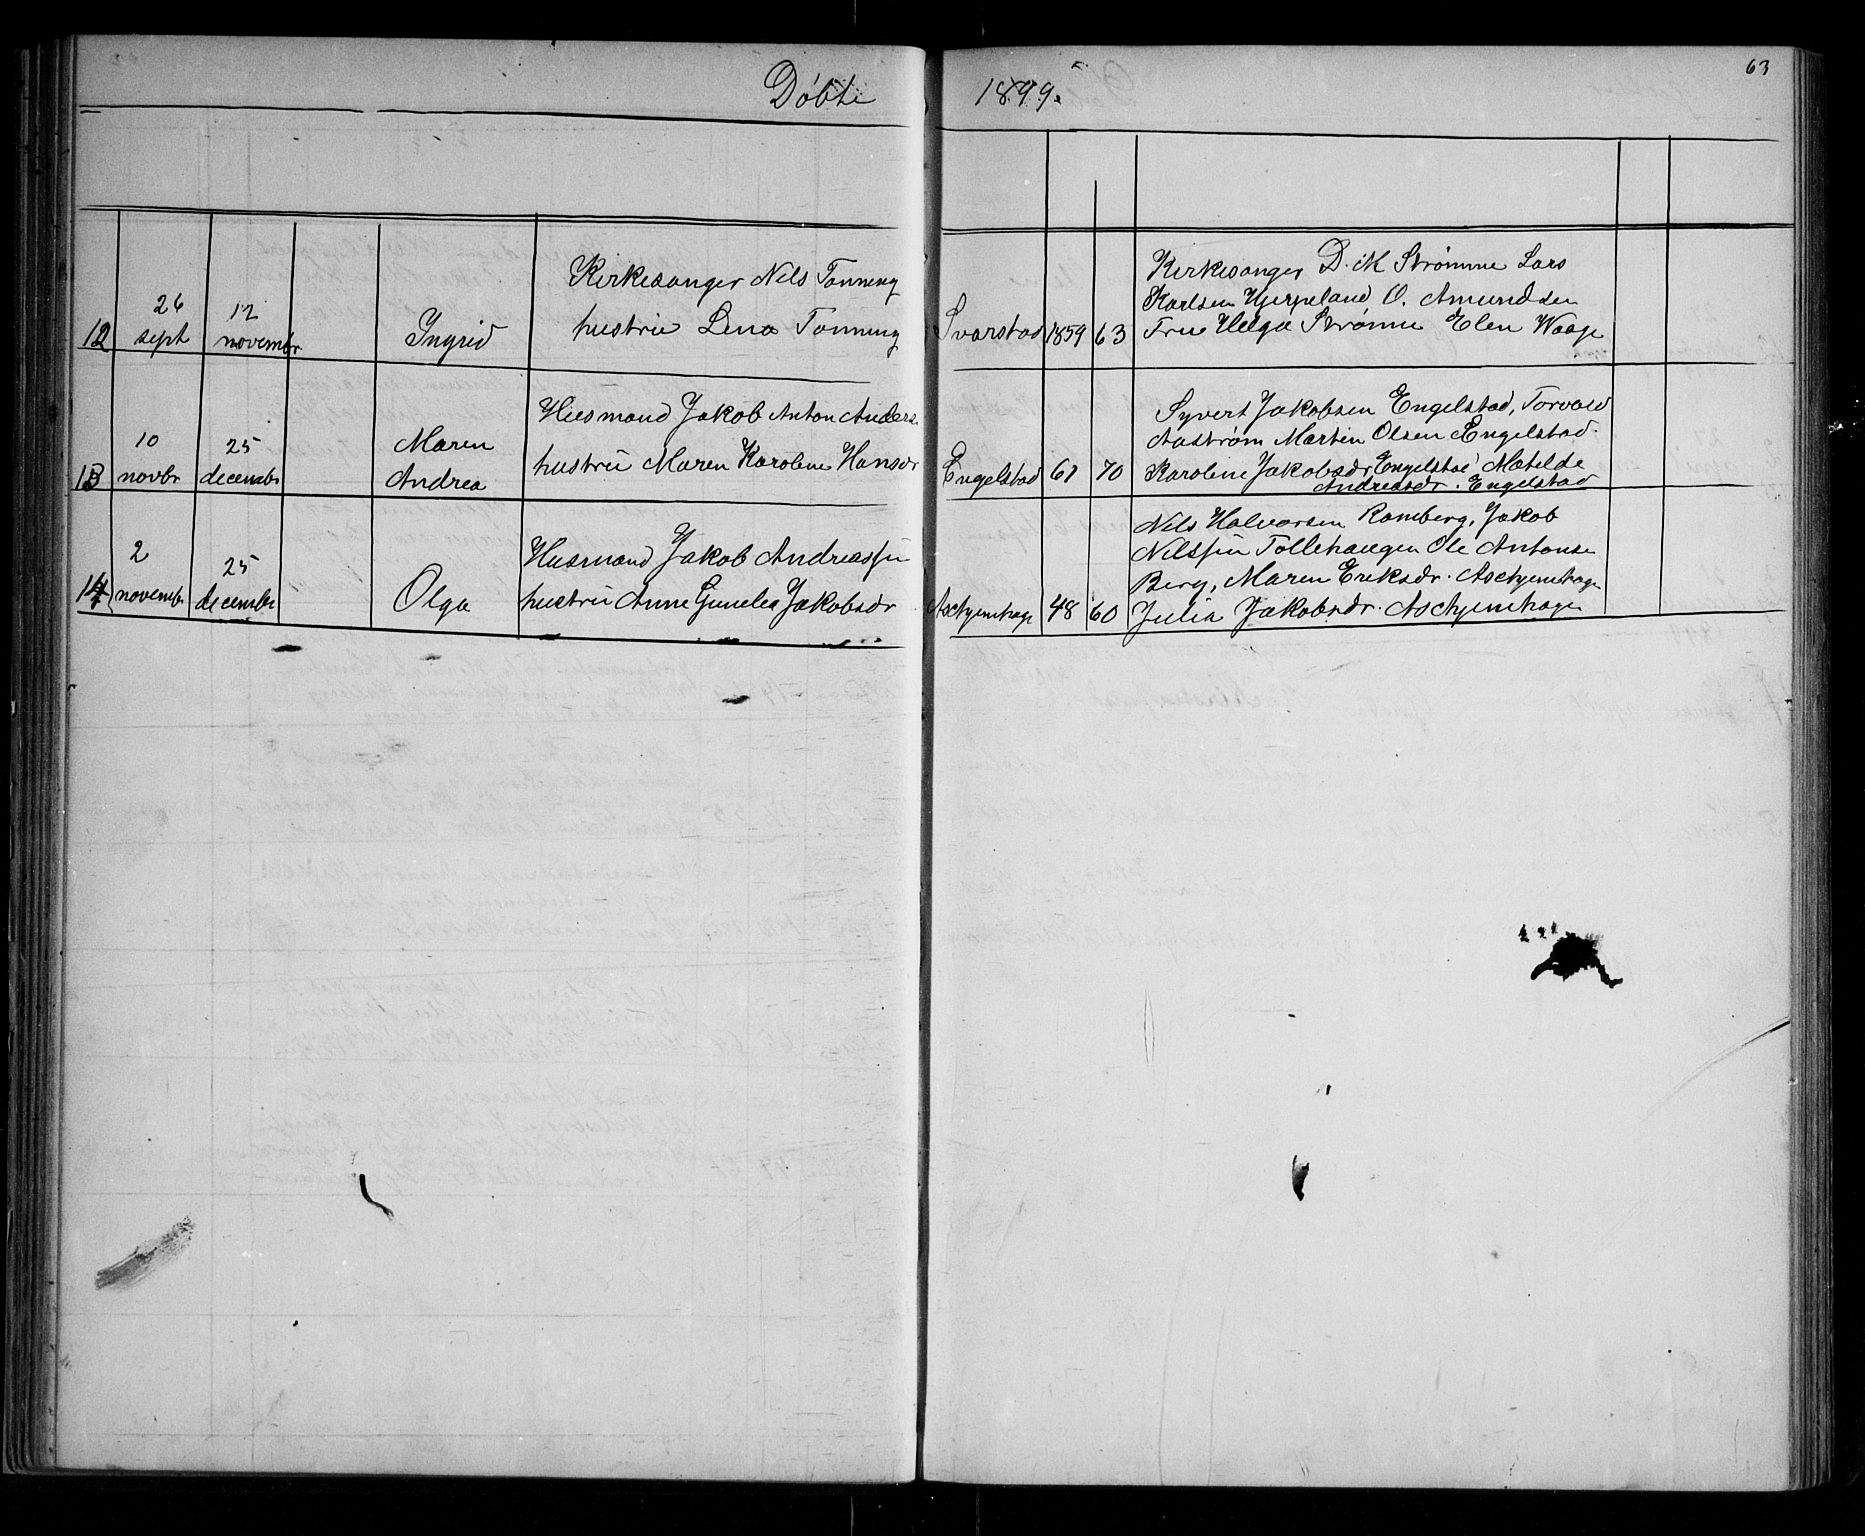 63
Døbte 1899.
12
26 sept
12 novembr
Ingrid
Kirkesanger Nils Tonning
hustru Lena Tonning
Svarstad
1859
63
Kirkesanger D. M Strømme Lars
Karlsen Hjerpeland O. Amundsen
Fru Helga Strømme Elen Waage
13
10 novbr
25 decembr
Maren
Andrea
Husmand Jakob Anton Anders.
hustru Maren Karoline Hansdr
Engelstad
61
70
Syvert Jakobsen Engelstad, Torvald
Aastrøm Martin Olsen Engelstad.
Karoline Jakobsdr Engelstad Matilde
Andreasdr. Engelstad
14
2 novembr
25 decembr
Olga
Husmand Jakob Andreassen
hustru Anne Gunelea Jakobsdr
48
60
Nils Halvorsen Ramberg, Jakob
Nilssen Tollehaugen Ole Antonsen
Berg, Maren Eriksdr.
Julia Jakobsdr.